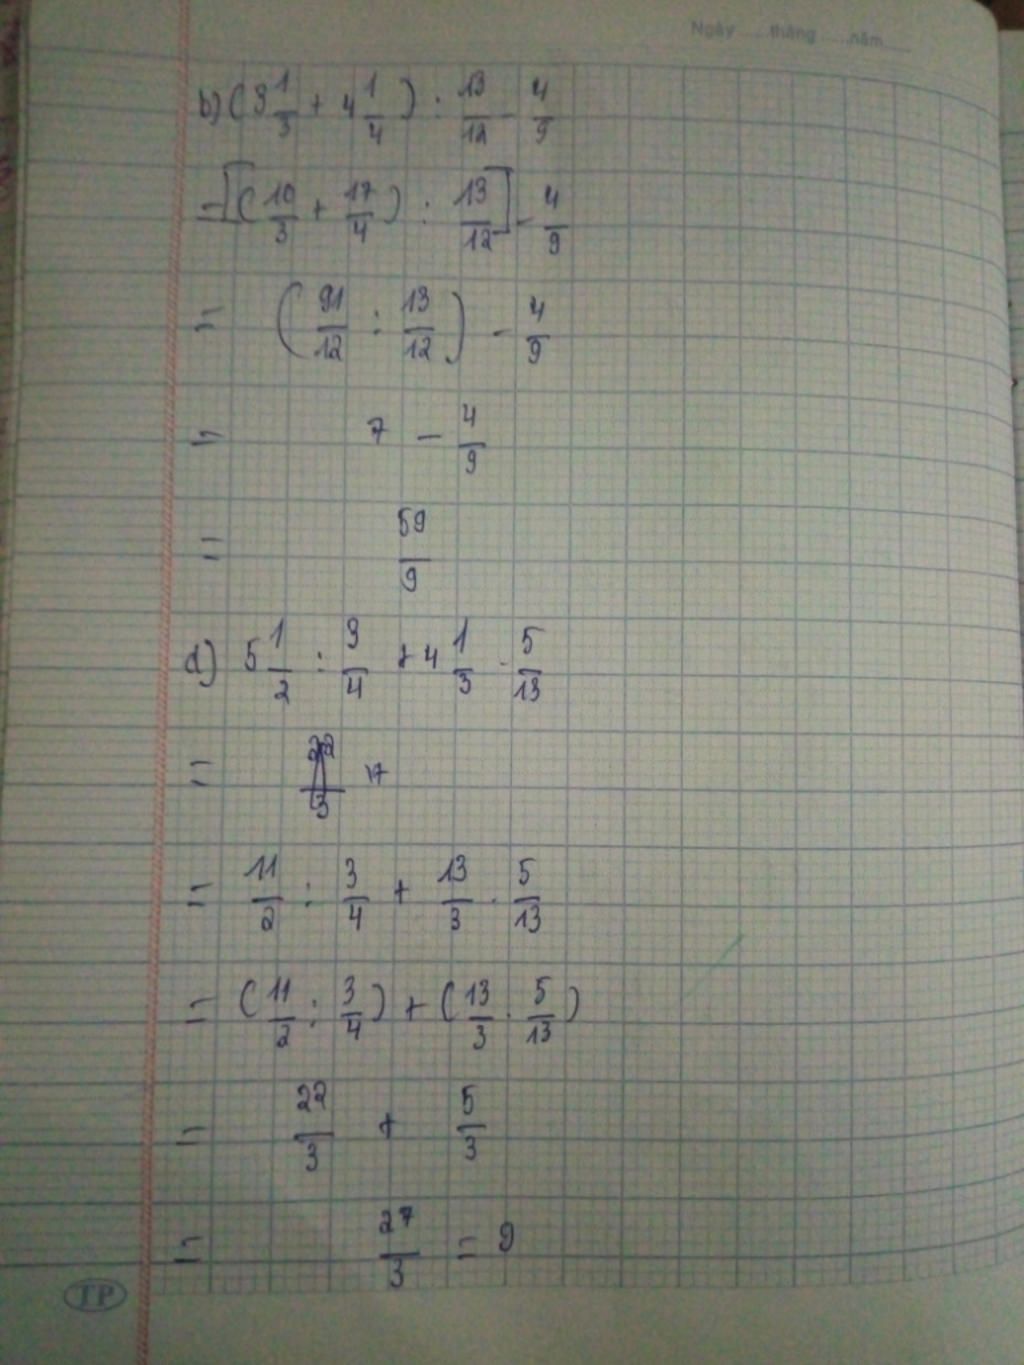 Ngày .....tháng .....năm.....
b) (3 1/3 + 4 1/4) : 13/12 - 4/9
= [(10/3 + 17/4) : 13/12] - 4/9
= (91/12 : 13/12) - 4/9
= 7 - 4/9
= 59/9
d) 5 1/2 : 3/4 + 4 1/3 . 5/13
=
= 11/2 : 3/4 + 13/3 . 5/13
= (11/2 : 3/4) + (13/3 . 5/13)
= 22/3 + 5/3
= 27/3 = 9
TP